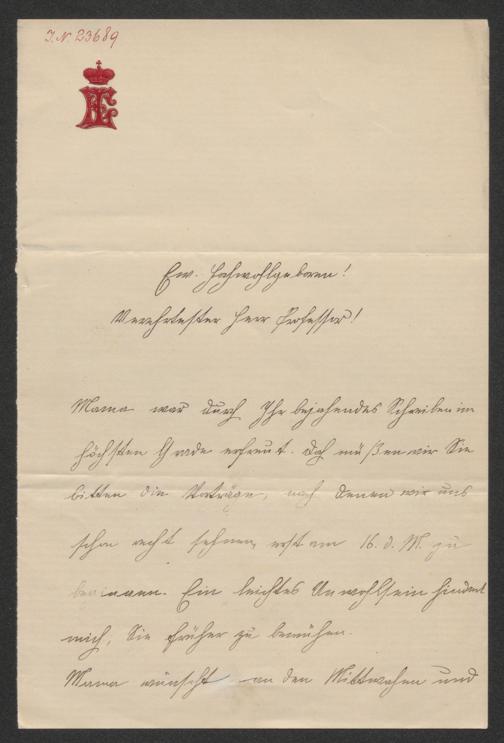 I. N 23689
Ew. Hochwohlgeboren!
Verehrtester Herr Professor!
Mama war durch Ihr bejahendes Schreiben im
höchsten Grade erfreut. Doch müßen wir Sie
bitten die Vorträge, nach denen wir uns
schon recht sehnen, erst am 16. d. M. zu
beginnen. Ein leichtes Unwohlsein hindert
mich, Sie früher zu bemühen.
Mama wünscht an den Mittwochen und